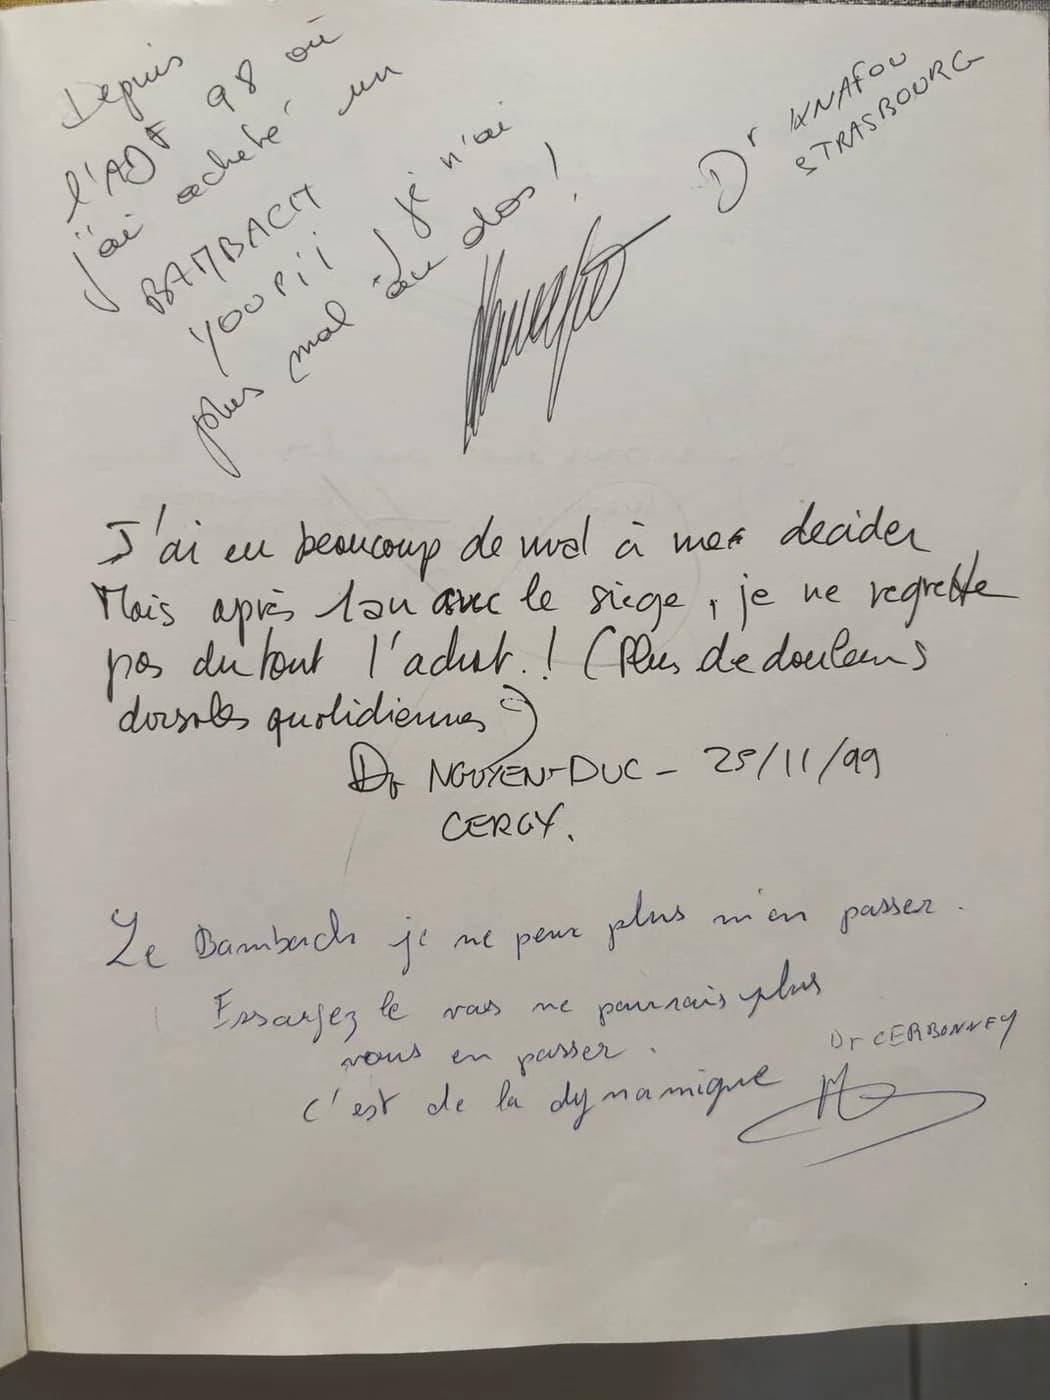 Depuis
l'ADF 98 où
j'ai acheté un
BAMBACH
YOUPii
plus mal je n'ai
au dos !
Dr KNAFOU
STRASBOURG
J'ai eu beaucoup de mal à me decider
Mais après 1 an avec le siège, je ne regrette
pas du tout l'achat.! (Plus de douleurs
dorsales quotidiennes)
Dr NGUYEN-DUC - 25/11/99
CERGY.
Le Bambach je ne peux plus m'en passer.
Essayez le vous ne pourrais plus
vous en passer.
Dr CERBONNEY
c'est de la dynamique